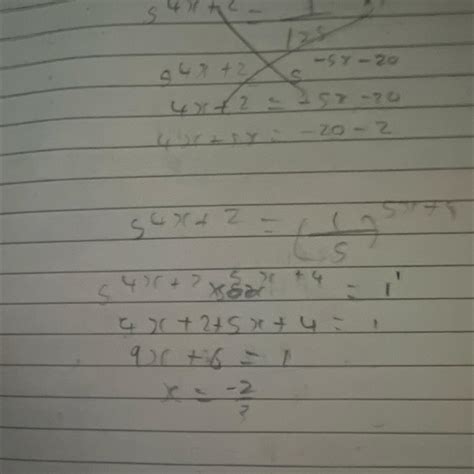 5^{4x+2} = 1/125
5^{4x+2} 5^{-5x-20}
4x+2 = -5x-20
4x+5x = -20-2
5^{4x+2} = (1/5)^{5x+
5^{4x+2} x 5^{x+4} = 1
4x+2+5x+4 = 1
9x+6 = 1
x = -2/3